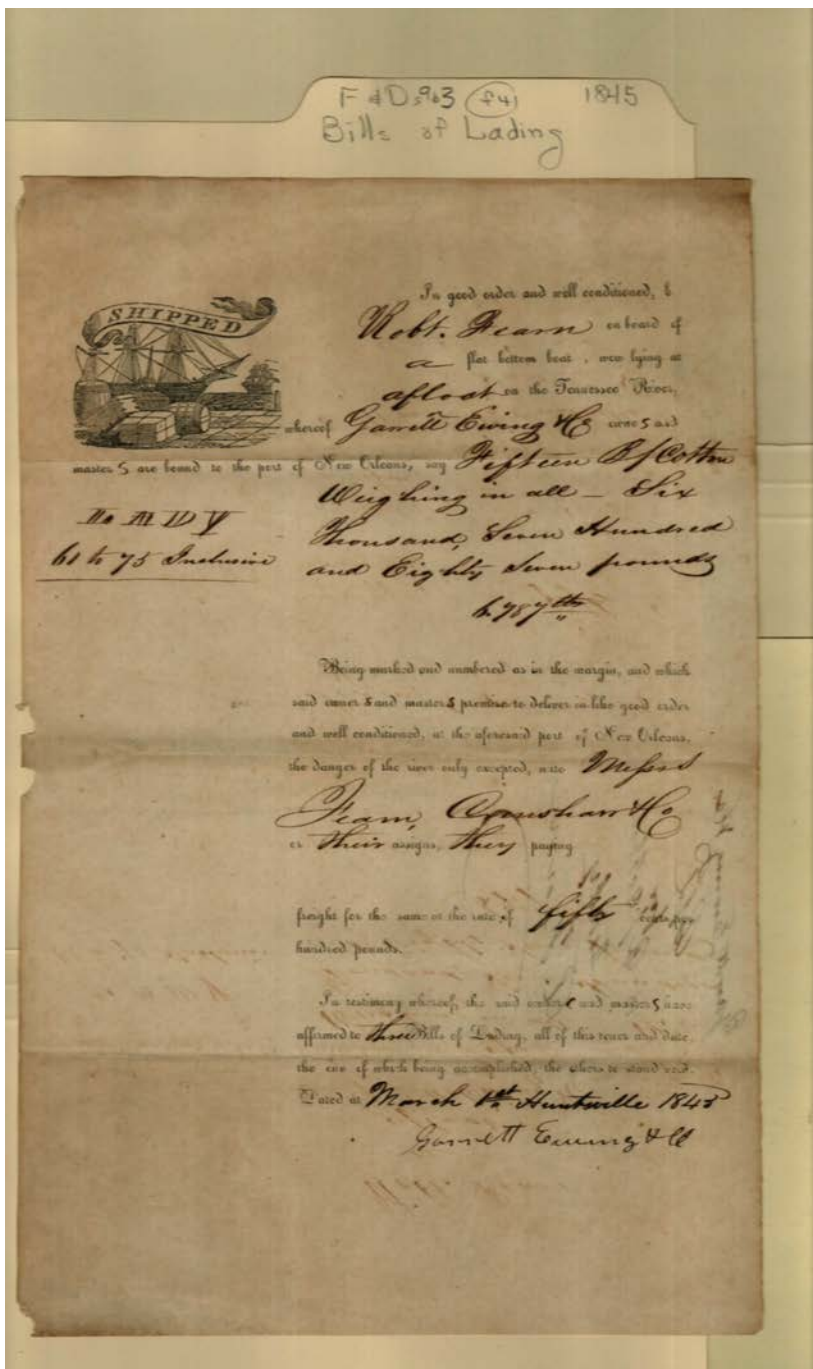 F & D 963 (f4) 1845
Bills of Lading
SHIPPED
In good order and well conditioned, b
Robt. Fearn on board of
a flat bottom boat, now lying at
afloat on the Tennessee River,
whereof Garrett Ewing & Co owners and
masters are bound to the port of New Orleans, say Fifteen B/Cotton
Weighing in all – Six
61 to 75 Inclusive
Thousand, Seven Hundred
and Eighty Seven pounds
6.787 lbs
Being marked and numbered as in the margin, and which
said owners and masters promise to deliver in like good order
and well conditioned, at the aforesaid port of New Orleans,
the danger of the river only excepted, unto Messrs
Fearn, Crenshaw & Co
or their assigns, they paying
freight for the same at the rate of fifty cents per
hundred pounds.
In testimony whereof, the said owners and masters have
affirmed to three Bills of Lading, all of this tenor and date,
the one of which being accomplished, the others to stand void.
Dated at March 1st Huntsville 1845
Garrett Ewing & Co